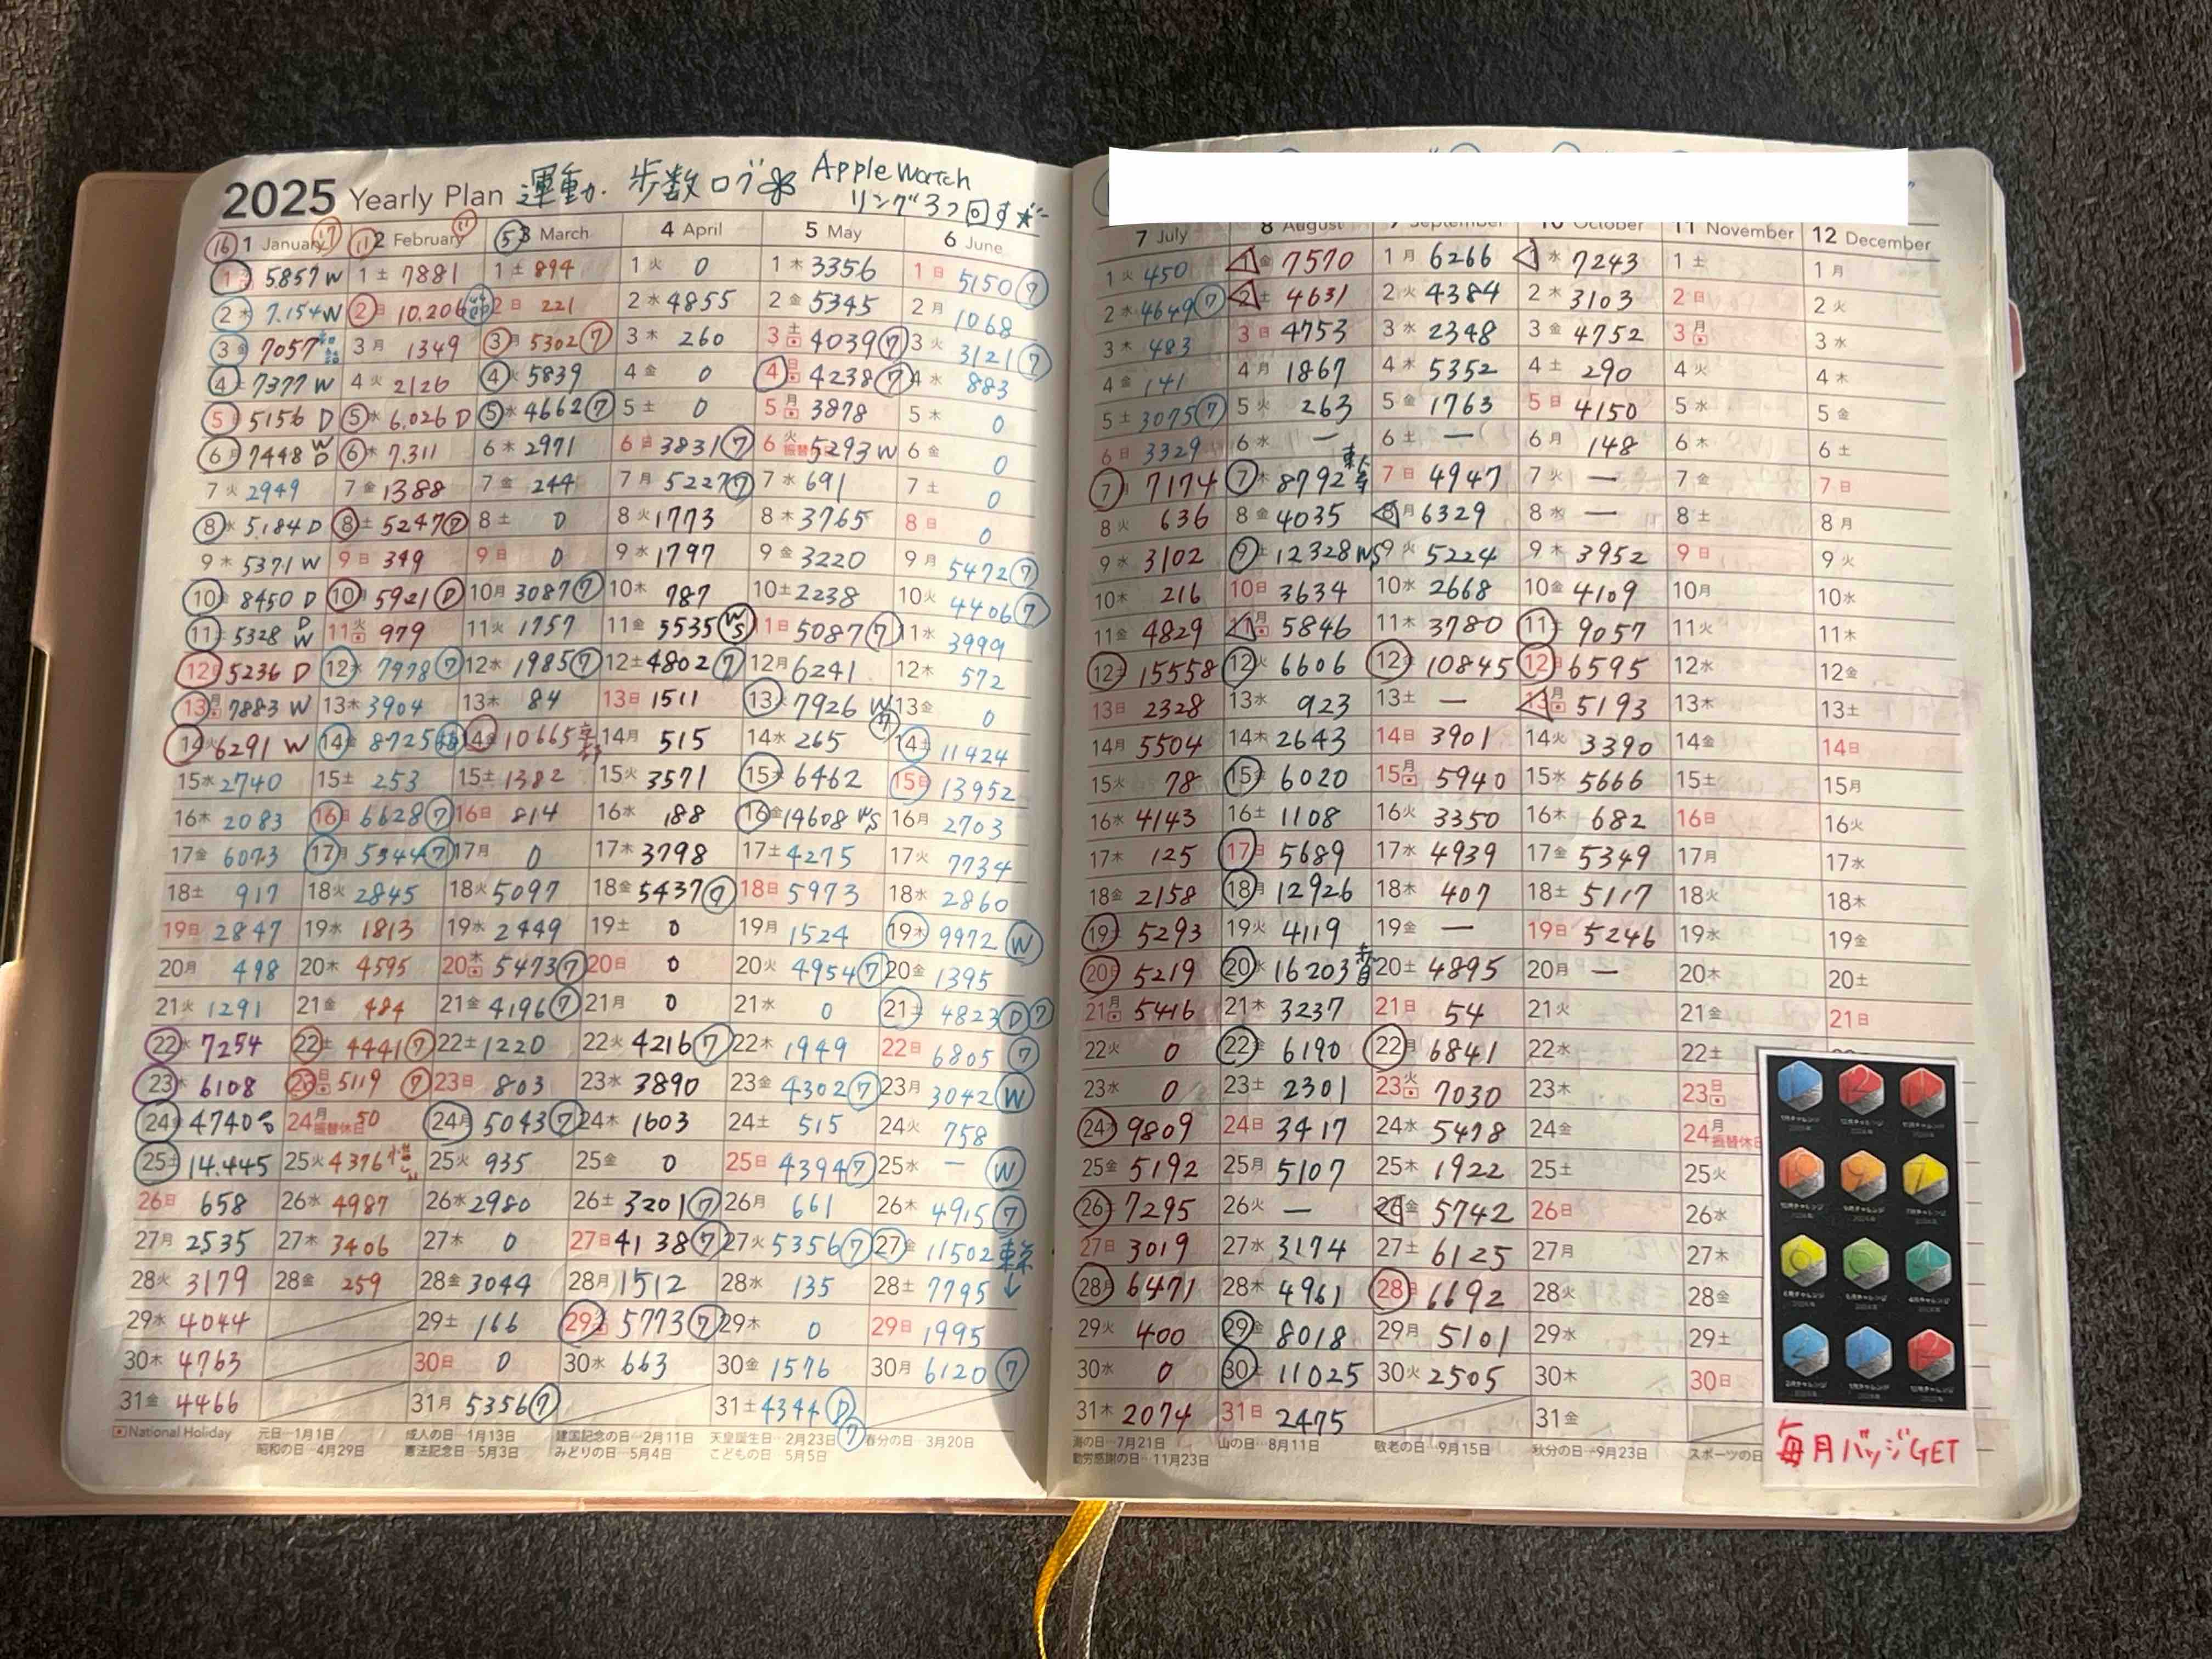 2025 Yearly Plan 運動. 歩数ログ Apple Watch
リング3つ回す
16 1 January 17 11 2 February 11 5 3 March 4 April 5 May 6 June
1 5857 W 1 土 7881 1 土 894 1 火 0 1 木 3356 1 日 5150 ⑦
2 木 7.154 W 2 日 10.206 2 日 221 2 水 4855 2 金 5345 2 月 1068
3 金 7057 3 月 1349 3 月 5302 ⑦ 3 木 260 3 土 4039 ⑦ 3 火 3121 ⑦
4 土 7377 W 4 火 2126 4 火 5839 4 金 0 4 日 4238 ⑦ 4 水 883
5 日 5156 D 5 水 6.026 D 5 水 4662 ⑦ 5 土 0 5 月 3878 5 木 0
6 月 7448 W D 6 木 7.311 6 木 2971 6 日 3831 ⑦ 6 火 振替休日 5293 W 6 金 0
7 火 2949 7 金 1388 7 金 244 7 月 5227 ⑦ 7 水 691 7 土 0
8 水 5.184 D 8 土 5247 ⑦ 8 土 0 8 火 1773 8 木 3765 8 日 0
9 木 5371 W 9 日 349 9 日 0 9 水 1797 9 金 3220 9 月 5472 ⑦
10 金 8450 D 10 月 5921 D 10 月 3087 ⑦ 10 木 787 10 土 2238 10 火 4406 ⑦
11 土 5328 D W 11 火 979 11 火 1757 11 金 5535 W S 11 日 5087 ⑦ 11 水 3999
12 日 5236 D 12 水 7978 ⑦ 12 水 1985 ⑦ 12 土 4802 ⑦ 12 月 6241 12 木 572
13 月 7883 W 13 木 3904 13 木 84 13 日 1511 13 火 7926 W ⑦ 13 金 0
14 火 6291 W 14 金 8725 14 金 10665 14 月 515 14 水 265 14 土 11424
15 水 2740 15 土 253 15 土 1382 15 火 3571 15 木 6462 15 日 13952
16 木 2083 16 日 6628 ⑦ 16 日 814 16 水 188 16 金 14608 W S 16 月 2703
17 金 6073 17 月 5344 ⑦ 17 月 0 17 木 3798 17 土 4275 17 火 7734
18 土 917 18 火 2845 18 火 5097 18 金 5437 ⑦ 18 日 5973 18 水 2860
19 日 2847 19 水 1813 19 水 2449 19 土 0 19 月 1524 19 木 9972 W
20 月 498 20 木 4595 20 木 5473 ⑦ 20 日 0 20 火 4954 ⑦ 20 金 1395
21 火 1291 21 金 484 21 金 4196 ⑦ 21 月 0 21 水 0 21 土 4823 D ⑦
22 水 7254 22 土 4441 ⑦ 22 土 1220 22 火 4216 ⑦ 22 木 1949 22 日 6805 ⑦
23 木 6108 23 日 5119 ⑦ 23 日 803 23 水 3890 23 金 4302 ⑦ 23 月 3042 W
24 金 4740 24 月 振替休日 50 24 月 5043 ⑦ 24 木 1603 24 土 515 24 火 758
25 土 14.445 25 火 4376 25 火 935 25 金 0 25 日 4394 ⑦ 25 水 ー W
26 日 658 26 水 4987 26 水 2980 26 土 3201 ⑦ 26 月 661 26 木 4915 ⑦
27 月 2535 27 木 3406 27 木 0 27 日 4138 ⑦ 27 火 5356 ⑦ 27 金 11502 東京
28 火 3179 28 金 259 28 金 3044 28 月 1512 28 水 135 28 土 7795 ↓
29 水 4044 29 土 166 29 火 5773 ⑦ 29 木 0 29 日 1995
30 木 4763 30 日 0 30 水 663 30 金 1576 30 月 6120 ⑦
31 金 4466 31 月 5356 ⑦ 31 土 4344 D ⑦
National Holiday 元日…1月1日 成人の日…1月13日 建国記念の日…2月11日 天皇誕生日…2月23日 春分の日…3月20日
昭和の日…4月29日 憲法記念日…5月3日 みどりの日…5月4日 こどもの日…5月5日
7 July 8 August 9 September 10 October 11 November 12 December
1 火 450 1 金 7570 1 月 6266 1 水 7243 1 土 1 月
2 水 4649 ⑦ 2 土 4631 2 火 4384 2 木 3103 2 日 2 火
3 木 483 3 日 4753 3 水 2348 3 金 4752 3 月 3 水
4 金 141 4 月 1867 4 木 5352 4 土 290 4 火 4 木
5 土 3075 ⑦ 5 火 263 5 金 1763 5 日 4150 5 水 5 金
6 日 3329 6 水 ー 6 土 ー 6 月 148 6 木 6 土
7 月 7174 7 木 8792 7 日 4947 7 火 ー 7 金 7 日
8 火 636 8 金 4035 8 月 6329 8 水 ー 8 土 8 月
9 水 3102 9 土 12328 WS 9 火 5224 9 木 3952 9 日 9 火
10 木 216 10 日 3634 10 水 2668 10 金 4109 10 月 10 水
11 金 4829 11 月 5846 11 木 3780 11 土 9057 11 火 11 木
12 土 15558 12 火 6606 12 金 10845 12 日 6595 12 水 12 金
13 日 2328 13 水 923 13 土 ー 13 月 5193 13 木 13 土
14 月 5504 14 木 2643 14 日 3901 14 火 3390 14 金 14 日
15 火 78 15 金 6020 15 月 5940 15 水 5666 15 土 15 月
16 水 4143 16 土 1108 16 火 3350 16 木 682 16 日 16 火
17 木 125 17 日 5689 17 水 4939 17 金 5349 17 月 17 水
18 金 2158 18 月 12926 18 木 407 18 土 5117 18 火 18 木
19 土 5293 19 火 4119 19 金 ー 19 日 5246 19 水 19 金
20 日 5219 20 水 16203 20 土 4895 20 月 ー 20 木 20 土
21 月 5416 21 木 3237 21 日 54 21 火 21 金 21 日
22 火 0 22 金 6190 22 月 6841 22 水 22 土
23 水 0 23 土 2301 23 火 7030 23 木 23 日
24 木 9809 24 日 3417 24 水 5478 24 金 24 月 振替休日
25 金 5192 25 月 5107 25 木 1922 25 土 25 火
26 土 7295 26 火 ー 26 金 5742 26 日 26 水
27 日 3019 27 水 3174 27 土 6125 27 月 27 木
28 月 6471 28 木 4961 28 日 6692 28 火 28 金
29 火 400 29 金 8018 29 月 5101 29 水 29 土
30 水 0 30 土 11025 30 火 2505 30 木 30 日
31 木 2074 31 日 2475 31 金
海の日…7月21日 山の日…8月11日 敬老の日…9月15日 秋分の日…9月23日 スポーツの日
勤労感謝の日…11月23日
毎月バッジGET